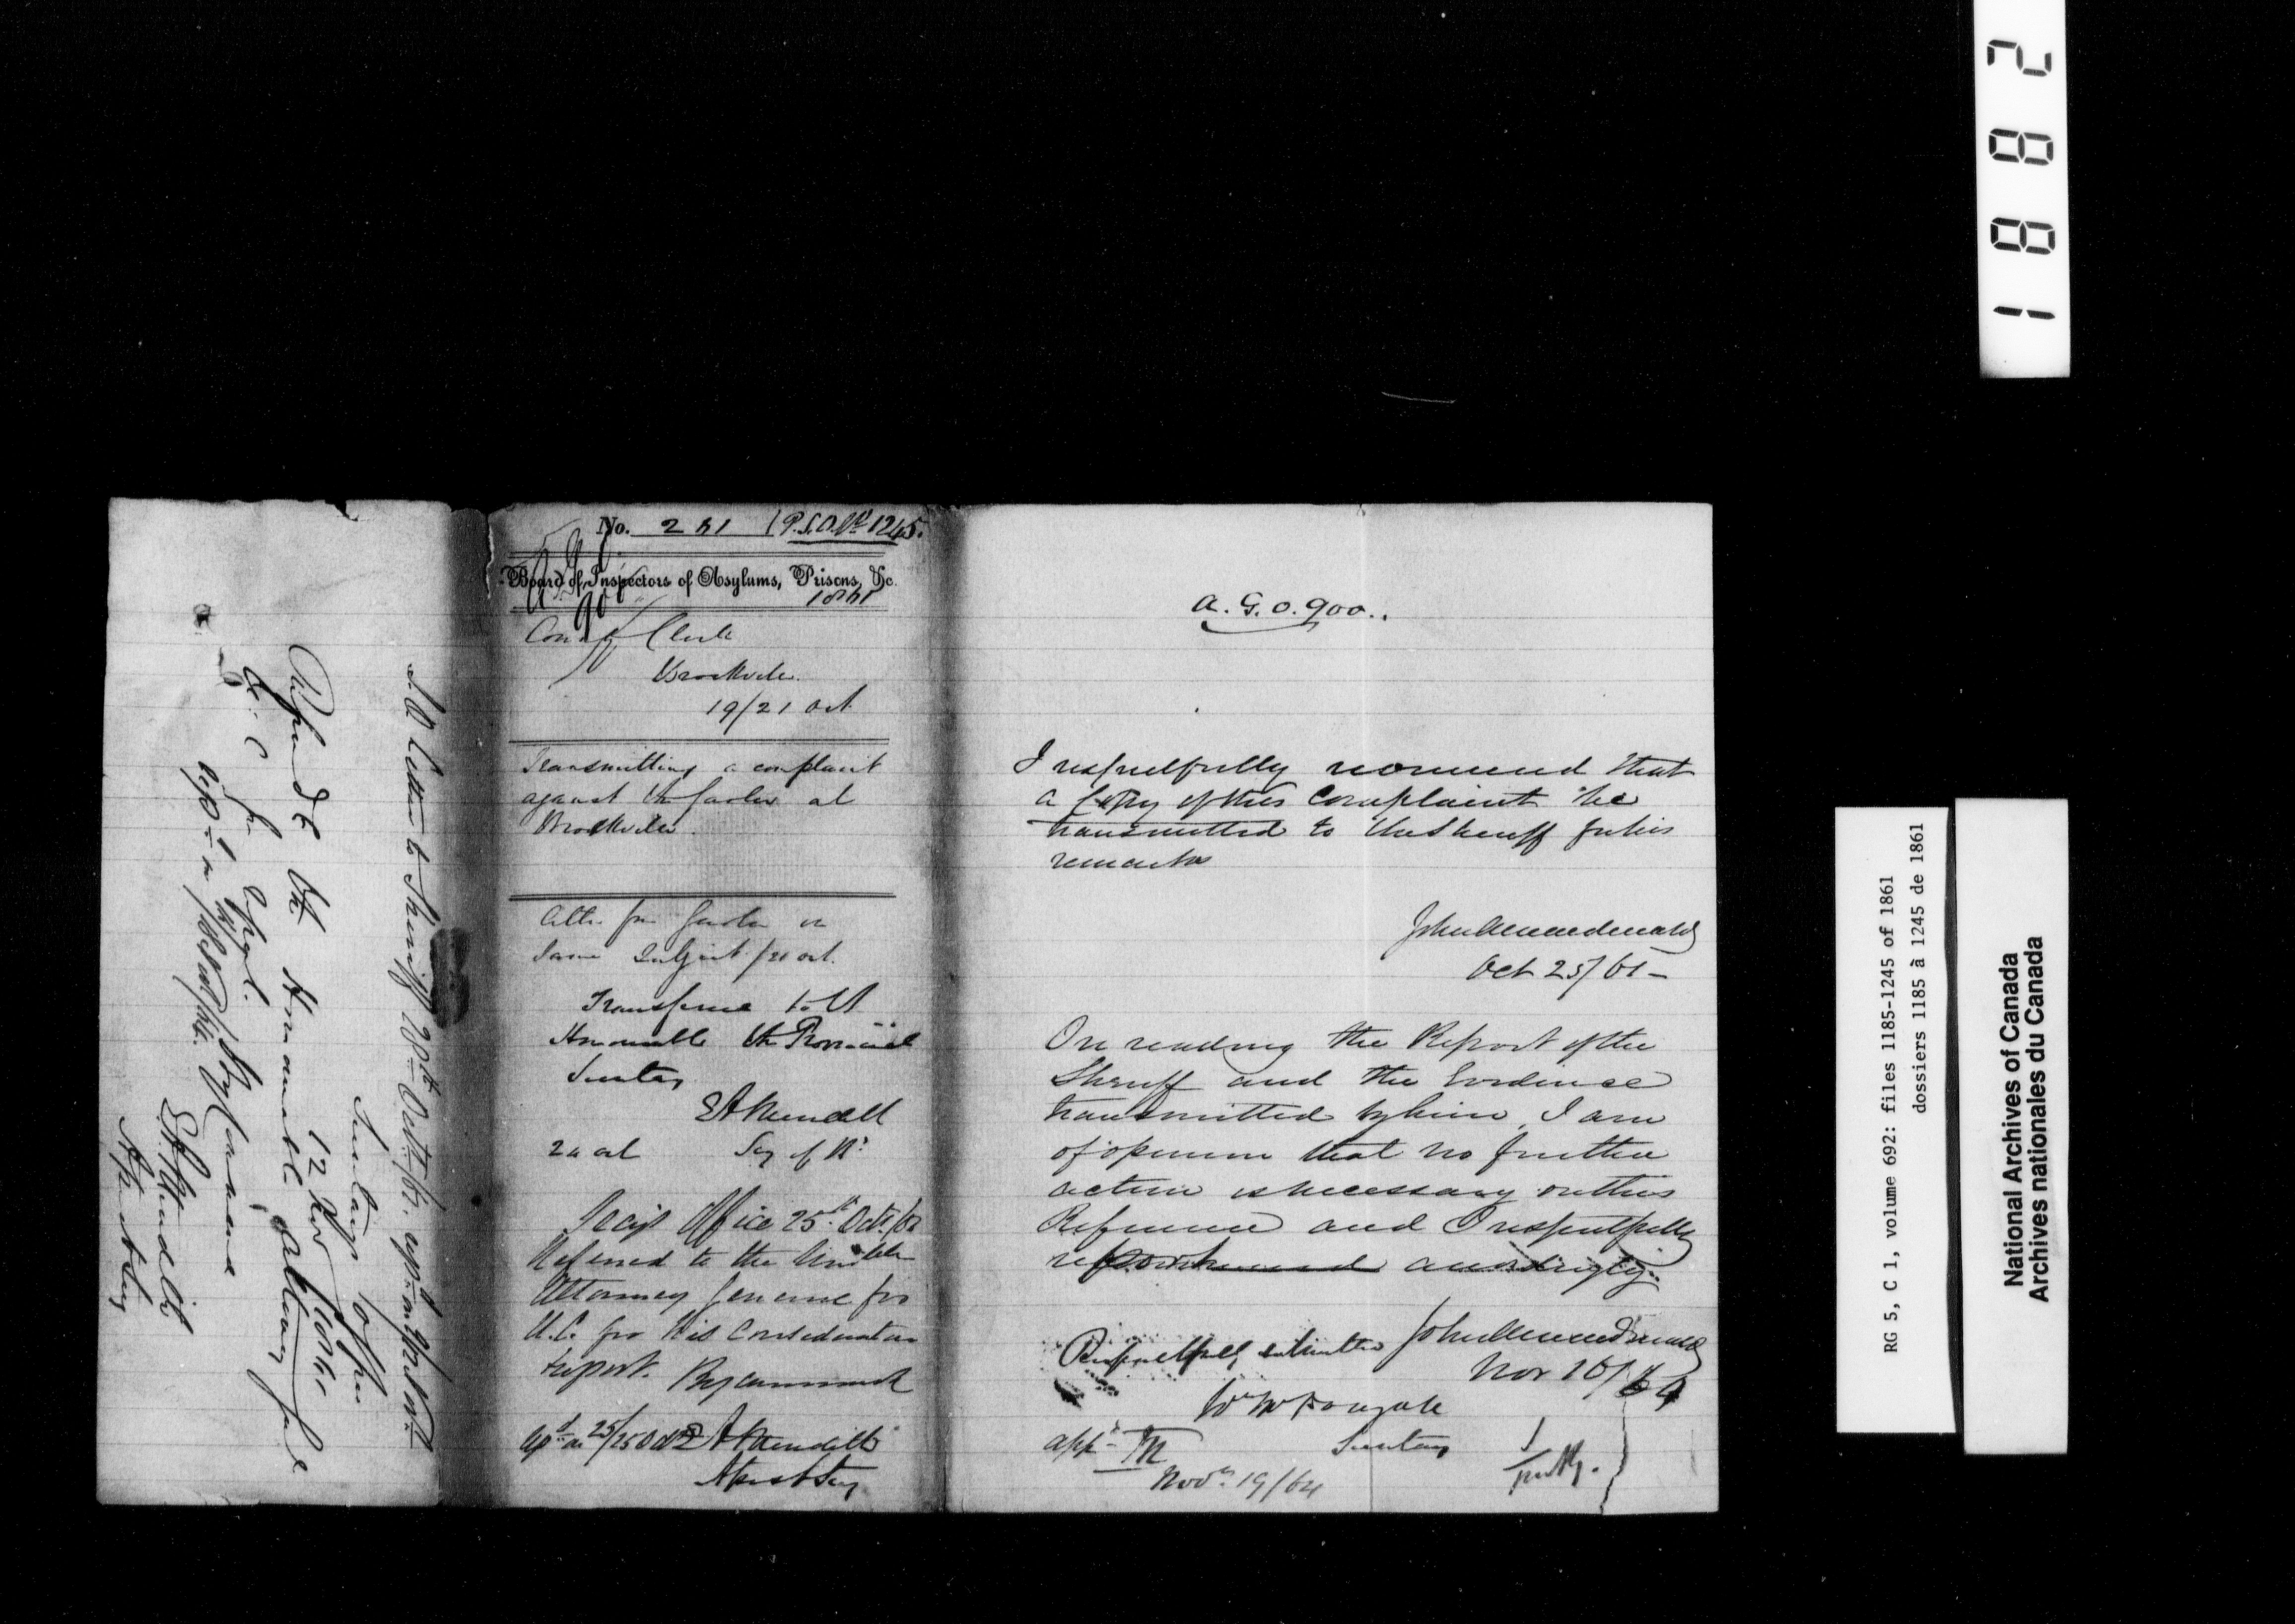 1882
RG 5, C 1, volume 692: files 1185-1245 of 1861
dossiers 1185 à 1245 de 1861
National Archives of Canada
Archives nationales du Canada
S.O. Letter to Sheriff 28th Octr/61.
Secretarys Office
12 Nov 1861
the Honorable Attorney Genl
U. C. for
By Command
E A Meredith
Asst Secy
No. 261 P.S.O. No 1245.
Board of Inspectors of Asylums, Prisons, &c.
1861
County Clerk
Brockville
19/21 Oct
Transmitting a complaint
against the Jaolor at
Brockville.
Letter from Jaolor on
Same Subject /20 oct.
Transferred to the
Honourable the Provincial
Secretary
E A Meredith
Secy of
Secys Office 25th Oct/61
Referred to the Honble the
Attorney General for
U.C. for his Consideration
& report. By command
E A Meredith
Asst Secy
A.G.O. 900..
I respectfully recommend that
a Copy of this Complaint be
transmitted to the Sheriff for his
remarks
John A Macdonald
Oct 25/61-
On reading the Report of the
Sheriff and the Evidence
transmitted by him, I am
of opinion that no further
action is necessary on this
Reference and I respectfully
report accordingly.
John A Macdonald
Nov 16/64
Respectfully submitted
Wm McDougall
Secretary
appd M
Novr 19/64